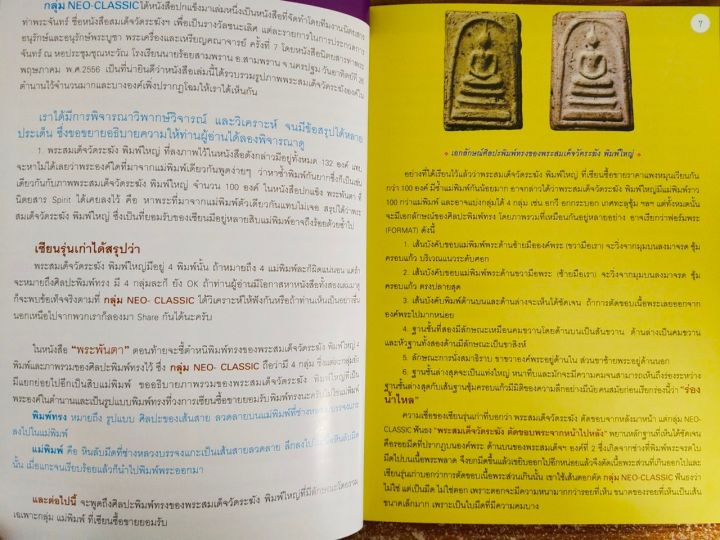 กลุ่ม NEO-CLASSIC ได้หนังสือปกแข็งมาเล่มหนึ่งเป็นหนังสือที่จัดทำโดยทีมงานนิตยสาร
ท่าพระจันทร์ ชื่อหนังสือสมเด็จวัดระฆังฯ เพื่อเป็นรางวัลชนะเลิศ แต่ละรายการในการประกวดการ
อนุรักษ์และอนุรักษ์พระบูชา พระเครื่องและเหรียญคณาจารย์ ครั้งที่ 7 โดยหนังสือนิตยสารท่าพระ
จันทร์ ณ หอประชุมชุณหะวัณ โรงเรียนนายร้อยสามพราน อ.สามพราน จ.นครปฐม วันอาทิตย์ที่ 26
พฤษภาคม พ.ศ.2556 เป็นที่น่ายินดีว่าหนังสือเล่มนี้ได้รวบรวมรูปภาพพระสมเด็จวัดระฆังองค์ใน
ตำนานไว้จำนวนมากและบางองค์เพิ่งปรากฏโฉมให้เราได้เห็นกัน
เราได้มีการพิจารณาวิพากษ์วิจารณ์ และวิเคราะห์ จนมีข้อสรุปได้หลาย
ประเด็น ซึ่งขอขยายอธิบายความให้ท่านผู้อ่านได้ลองพิจารณาดู
1. พระสมเด็จวัดระฆัง พิมพ์ใหญ่ ที่ลงภาพไว้ในหนังสือดังกล่าวมีอยู่ทั้งหมด 132 องค์
จะหาไม่ได้เลยว่าพระองค์ใดที่มาจากแม่พิมพ์เดียวกันพูดง่ายๆ ว่าหาซ้ำพิมพ์กันยากซึ่งก็เป็นเช่น
เดียวกันกับภาพพระสมเด็จวัดระฆัง พิมพ์ใหญ่ จำนวน 100 องค์ ในหนังสือปกแข็ง พระพันตา ที่
นิตยสาร Spirit ได้เคยลงไว้ คือ หาพระที่มาจากแม่พิมพ์ตัวเดียวกันแทบไม่เจอ สรุปได้ว่าพระ
สมเด็จวัดระฆัง พิมพ์ใหญ่ ซึ่งเป็นที่ยอมรับของเซียนมีอยู่หลายสิบแม่พิมพ์อาจถึงร้อยด้วยซ้ำไป
เซียนรุ่นเก่าได้สรุปว่า
พระสมเด็จวัดระฆัง พิมพ์ใหญ่มีอยู่ 4 พิมพ์นั้น ถ้าหมายถึง 4 แม่พิมพ์ละก็ผิดแน่นอน แต่ถ้า
จะหมายถึงศิลปะพิมพ์ทรง มี 4 กลุ่มละก็ ยัง OK ถ้าท่านผู้อ่านมีโอกาสหาหนังสือทั้งสองเล่มมาดู
ก็จะพบข้อเท็จจริงตามที่ กลุ่ม NEO- CLASSIC ได้วิเคราะห์ให้ฟังกันหรือถ้าท่านเห็นเป็นอย่างอื่น
นอกเหนือไปจากพวกเราก็ลองมา Share กันได้นะครับ
ในหนังสือ "พระพันตา" ตอนท้ายจะชี้ตำหนิพิมพ์ทรงของพระสมเด็จวัดระฆัง พิมพ์ใหญ่ 4
พิมพ์และภาพรวมของศิลปะพิมพ์ทรงไว้ ซึ่ง กลุ่ม NEO- CLASSIC ถือว่ามี 4 กลุ่ม ซึ่งแต่ละกลุ่มยัง
มีแยกย่อยไปอีกเป็นสิบแม่พิมพ์ ขออธิบายภาพรวมของพระสมเด็จวัดระฆัง พิมพ์ใหญ่ ที่เป็นพระ
องค์ในตำนานและเป็นรูปแบบพิมพ์ทรงที่วงการเซียนซื้อขายยอมรับพิมพ์ทรงนะครับไม่ใช่แม่พิมพ์
พิมพ์ทรง หมายถึง รูปแบบ ศิลปะของเส้นสาย ลวดลายบนแม่พิมพ์ที่ช่างหลวงบรรจงแกะ
ลงไปในแม่พิมพ์
แม่พิมพ์ คือ หินลับมีดที่ช่างหลวงบรรจงแกะเป็นเส้นสายลวดลาย ลึกลงไปในเนื้อหินลับมีด
นั้น เมื่อแกะจนเรียบร้อยแล้วก็นำไปพิมพ์พระออกมา
และต่อไปนี้ จะพูดถึงศิลปะพิมพ์ทรงของพระสมเด็จวัดระฆัง พิมพ์ใหญ่ที่มีลักษณะโดยรวม
เฉพาะกลุ่ม แม่พิมพ์ ที่เซียนซื้อขายยอมรับ
7
เอกลักษณ์ศิลปะพิมพ์ทรงของพระสมเด็จวัดระฆัง พิมพ์ใหญ่
อย่างที่ได้เรียนไว้แล้วว่าพระสมเด็จวัดระฆัง พิมพ์ใหญ่ ที่เซียนซื้อขายราคาแพงหมุนเวียนกัน
กว่า 100 องค์ มีซ้ำแม่พิมพ์กันน้อยมาก อาจกล่าวได้ว่าพระสมเด็จวัดระฆัง พิมพ์ใหญ่มีแม่พิมพ์ราว
100 กว่าแม่พิมพ์ และอาจแบ่งกลุ่มได้ 4 กลุ่ม เช่น อกวี อกกระบอก เกศทะลุซุ้ม ฯลฯ แต่ทั้งหมดนั้น
จะมีเอกลักษณ์ของศิลปะพิมพ์ทรง โดยภาพรวมที่เหมือนกันอยู่หลายอย่าง อาจเรียกว่าฟอร์มพระ
(FORMAT) ดังนี้
1. เส้นบังคับขอบแม่พิมพ์พระด้านซ้ายมือองค์พระ (ขวามือเรา) จะวิ่งจากมุมบนลงมาจรด ซุ้ม
ครอบแก้ว บริเวณแนวระดับศอก
2. เส้นบังคับขอบแม่พิมพ์พระด้านขวามือพระ (ซ้ายมือเรา) จะวิ่งจากมุมบนลงมาจรด ซุ้ม
ครอบแก้ว ตรงปลายสุด
3. เส้นบังคับพิมพ์ด้านบนและด้านล่างจะเห็นได้ชัดเจน ถ้าการตัดขอบเนื้อพระเลยออกจาก
องค์พระไปมากหน่อย
4. ฐานชั้นที่สองมีลักษณะเหมือนคมขวานโดยด้านบนเป็นสันขวาน ด้านล่างเป็นคมขวาน
และหัวฐานทั้งสองด้านมีลักษณะเป็นขาสิงห์
5. ลักษณะการนั่งสมาธิราบ ขาขวาองค์พระอยู่ด้านใน ส่วนขาซ้ายพระอยู่ด้านนอก
6. ฐานชั้นล่างสุดจะเป็นแท่งใหญ่ หนาทึบและมักจะมีความคมจนสามารถเห็นถึงร่องระหว่าง
ฐานชั้นล่างสุดกับเส้นฐานซุ้มครอบแก้วมีมิติของความลึกอย่างมีนัยคนสมัยก่อนเรียกร่องนี้ว่า "ร่อง
น้ำไหล"
ความเชื่อของเซียนรุ่นเก่าที่บอกว่า พระสมเด็จวัดระฆัง ตัดขอบจากหลังมาหน้า แต่กลุ่ม NEO-
CLASSIC ฟันธง "พระสมเด็จวัดระฆัง ตัดขอบพระจากหน้าไปหลัง" พยานหลักฐานที่เห็นได้ชัดเจน
คือรอยมีดที่ปรากฏบนองค์พระ ด้านบนของพระสมเด็จฯ องค์ที่ 2 ซึ่งเกิดจากช่างที่พิมพ์พระจรดใบ
มีดไปบนเนื้อพระพลาด จึงยกมีดขึ้นแล้วเขยิบออกไปอีกหน่อยแล้วจึงตัดเนื้อพระส่วนที่เกินออกไปและ
เซียนรุ่นเก่าบอกว่าการตัดขอบเนื้อพระส่วนเกินนั้น เขาใช้เส้นตอกตัด กลุ่ม NEO-CLASSIC ฟันธงว่า
ไม่ใช่ แต่เป็นมีด ไม่ใช่ตอก เพราะตอกจะมีความหนามากกว่ารอยที่เห็น ขนาดของรอยที่เห็นเป็นเส้น
ขนาดเล็กมาก เพราะเป็นใบมีดที่มีความคมบาง